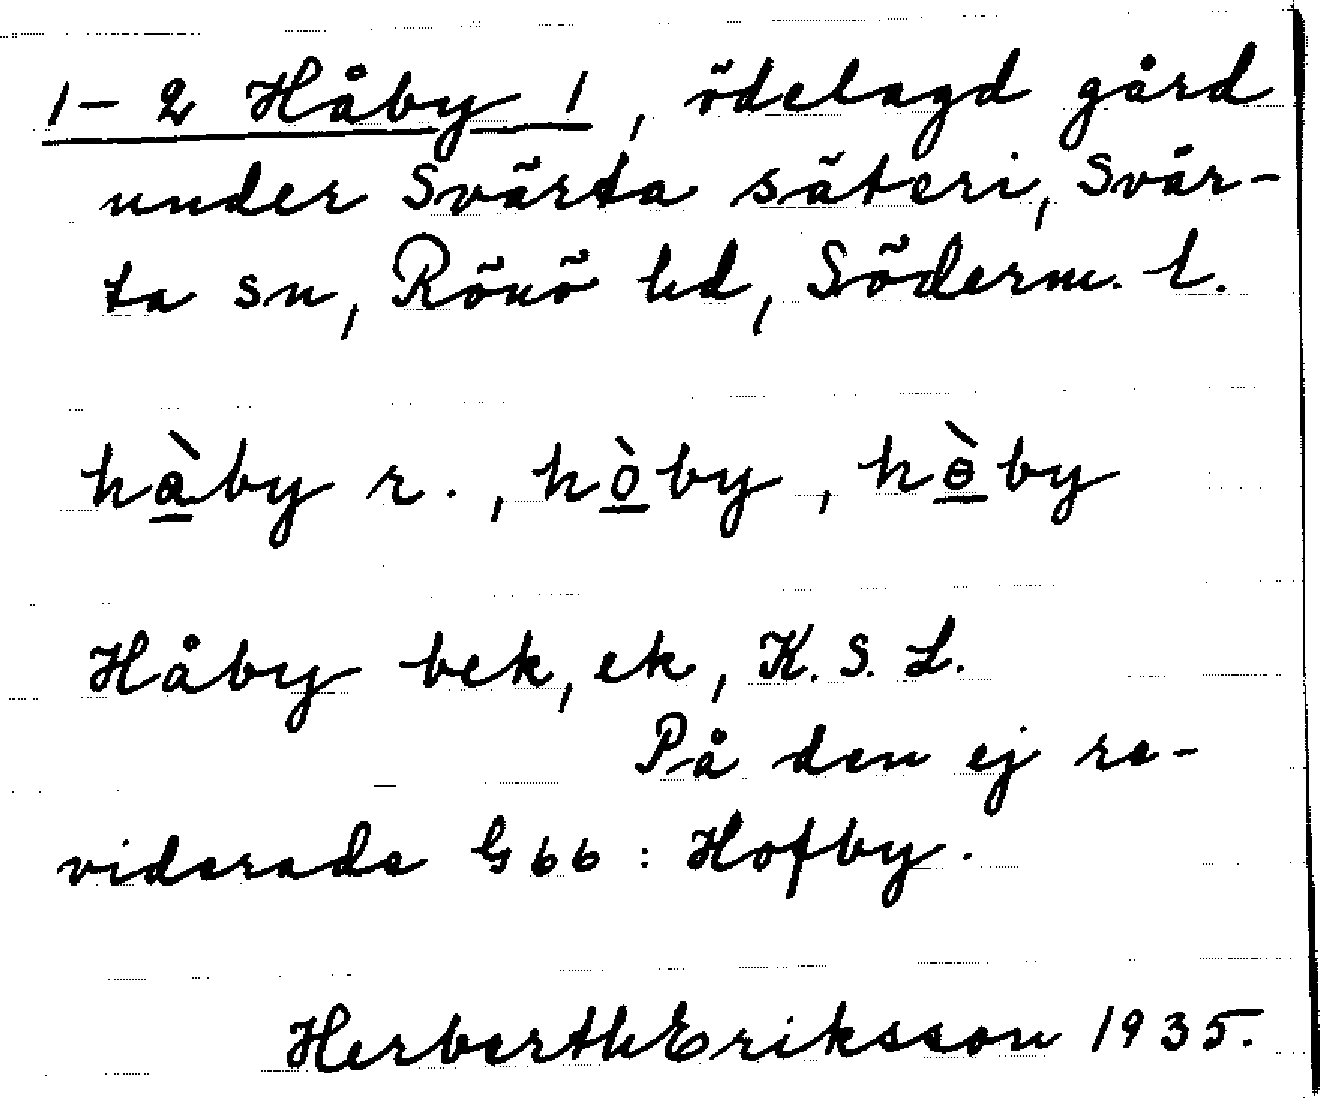 1–2 Håby 1, ödelagd gård
under Svärta säteri, Svär-
ta sn, Rönö hd, Söderm. l.
hàby r., hòby, hɵ̀by
Håby bek, ek, K. S. L.
På den ej re-
viderade G66: Hofby.
Herberth Eriksson 1935.